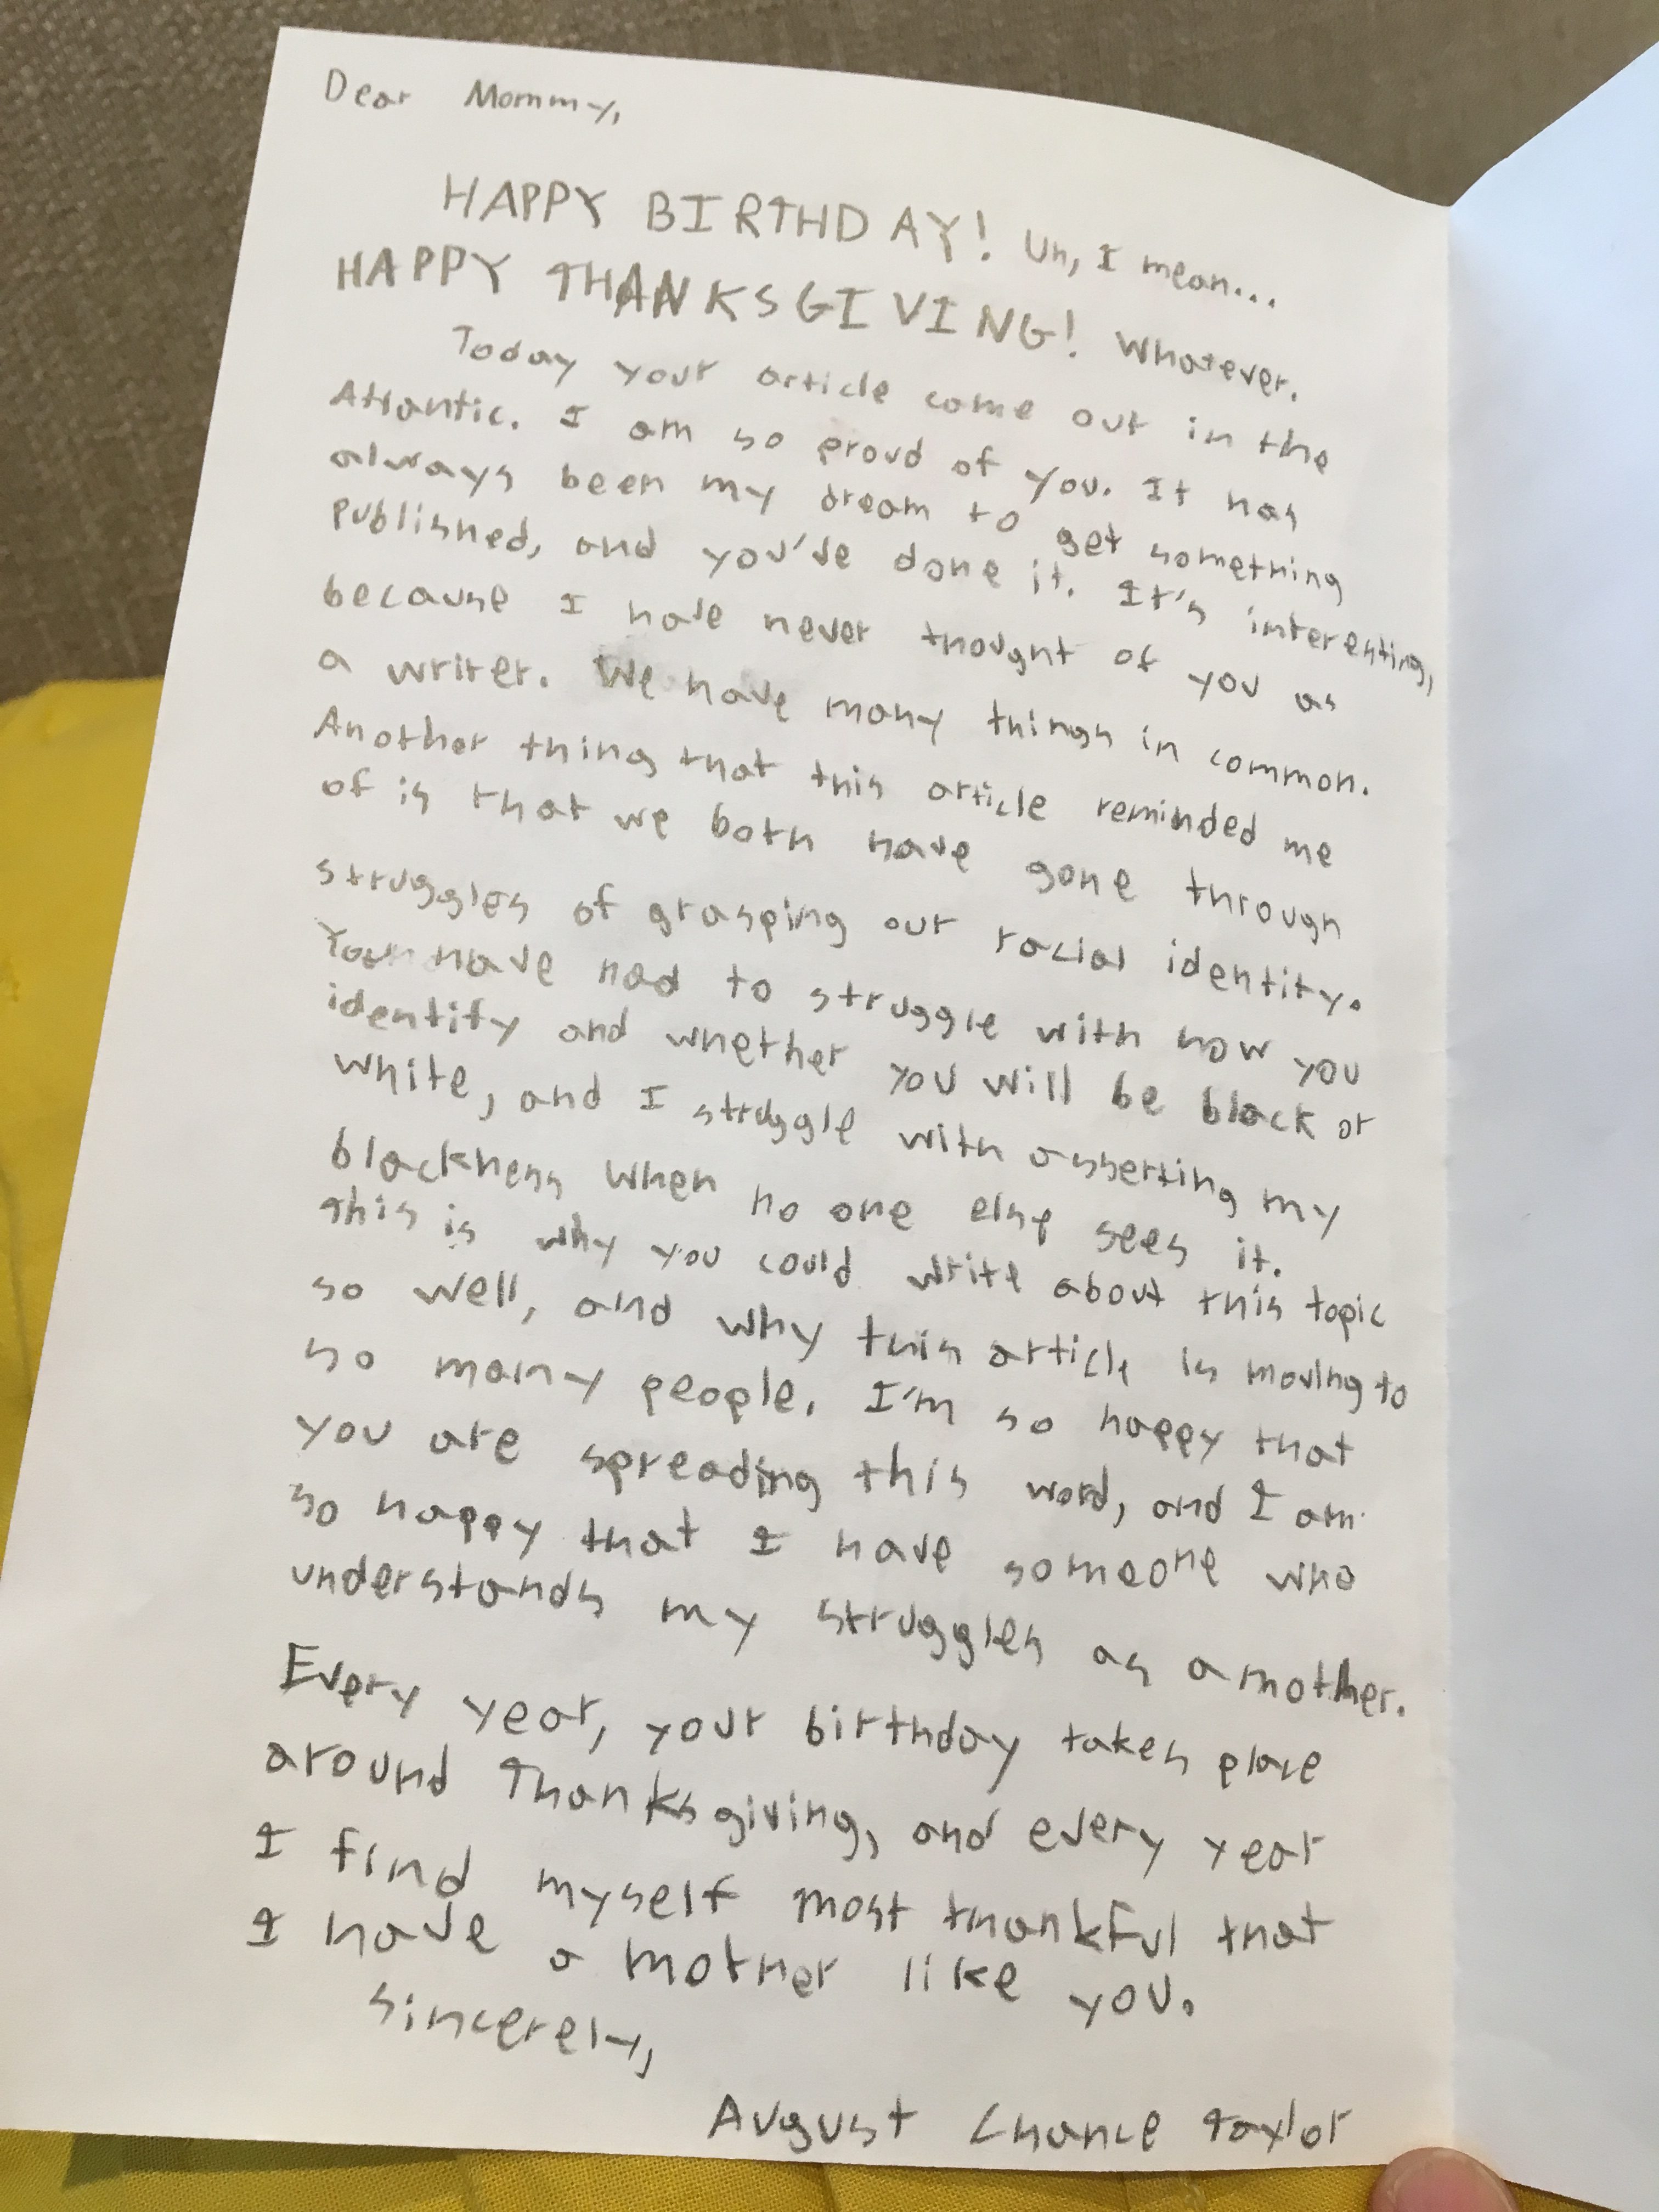 Dear Mommy,
HAPPY BIRTHDAY! Uh, I mean...
HAPPY THANKSGIVING! Whatever.
Today your article came out in the
Atlantic. I am so proud of you. It has
always been my dream to get something
published, and you've done it. It's interesting,
because I have never thought of you as
a writer. We have many things in common.
Another thing that this article reminded me
of is that we both have gone through
struggles of grasping our racial identity.
You have had to struggle with how you
identify and whether you will be black or
white, and I struggle with asserting my
blackness when no one else sees it.
This is why you could write about this topic
so well, and why this article is moving to
so many people. I'm so happy that
you are spreading this word, and I am
so happy that I have someone who
understands my struggles as a mother.
Every year, your birthday takes place
around Thanksgiving, and every year
I find myself most thankful that
I have a mother like you.
Sincerely,
August Chance Taylor